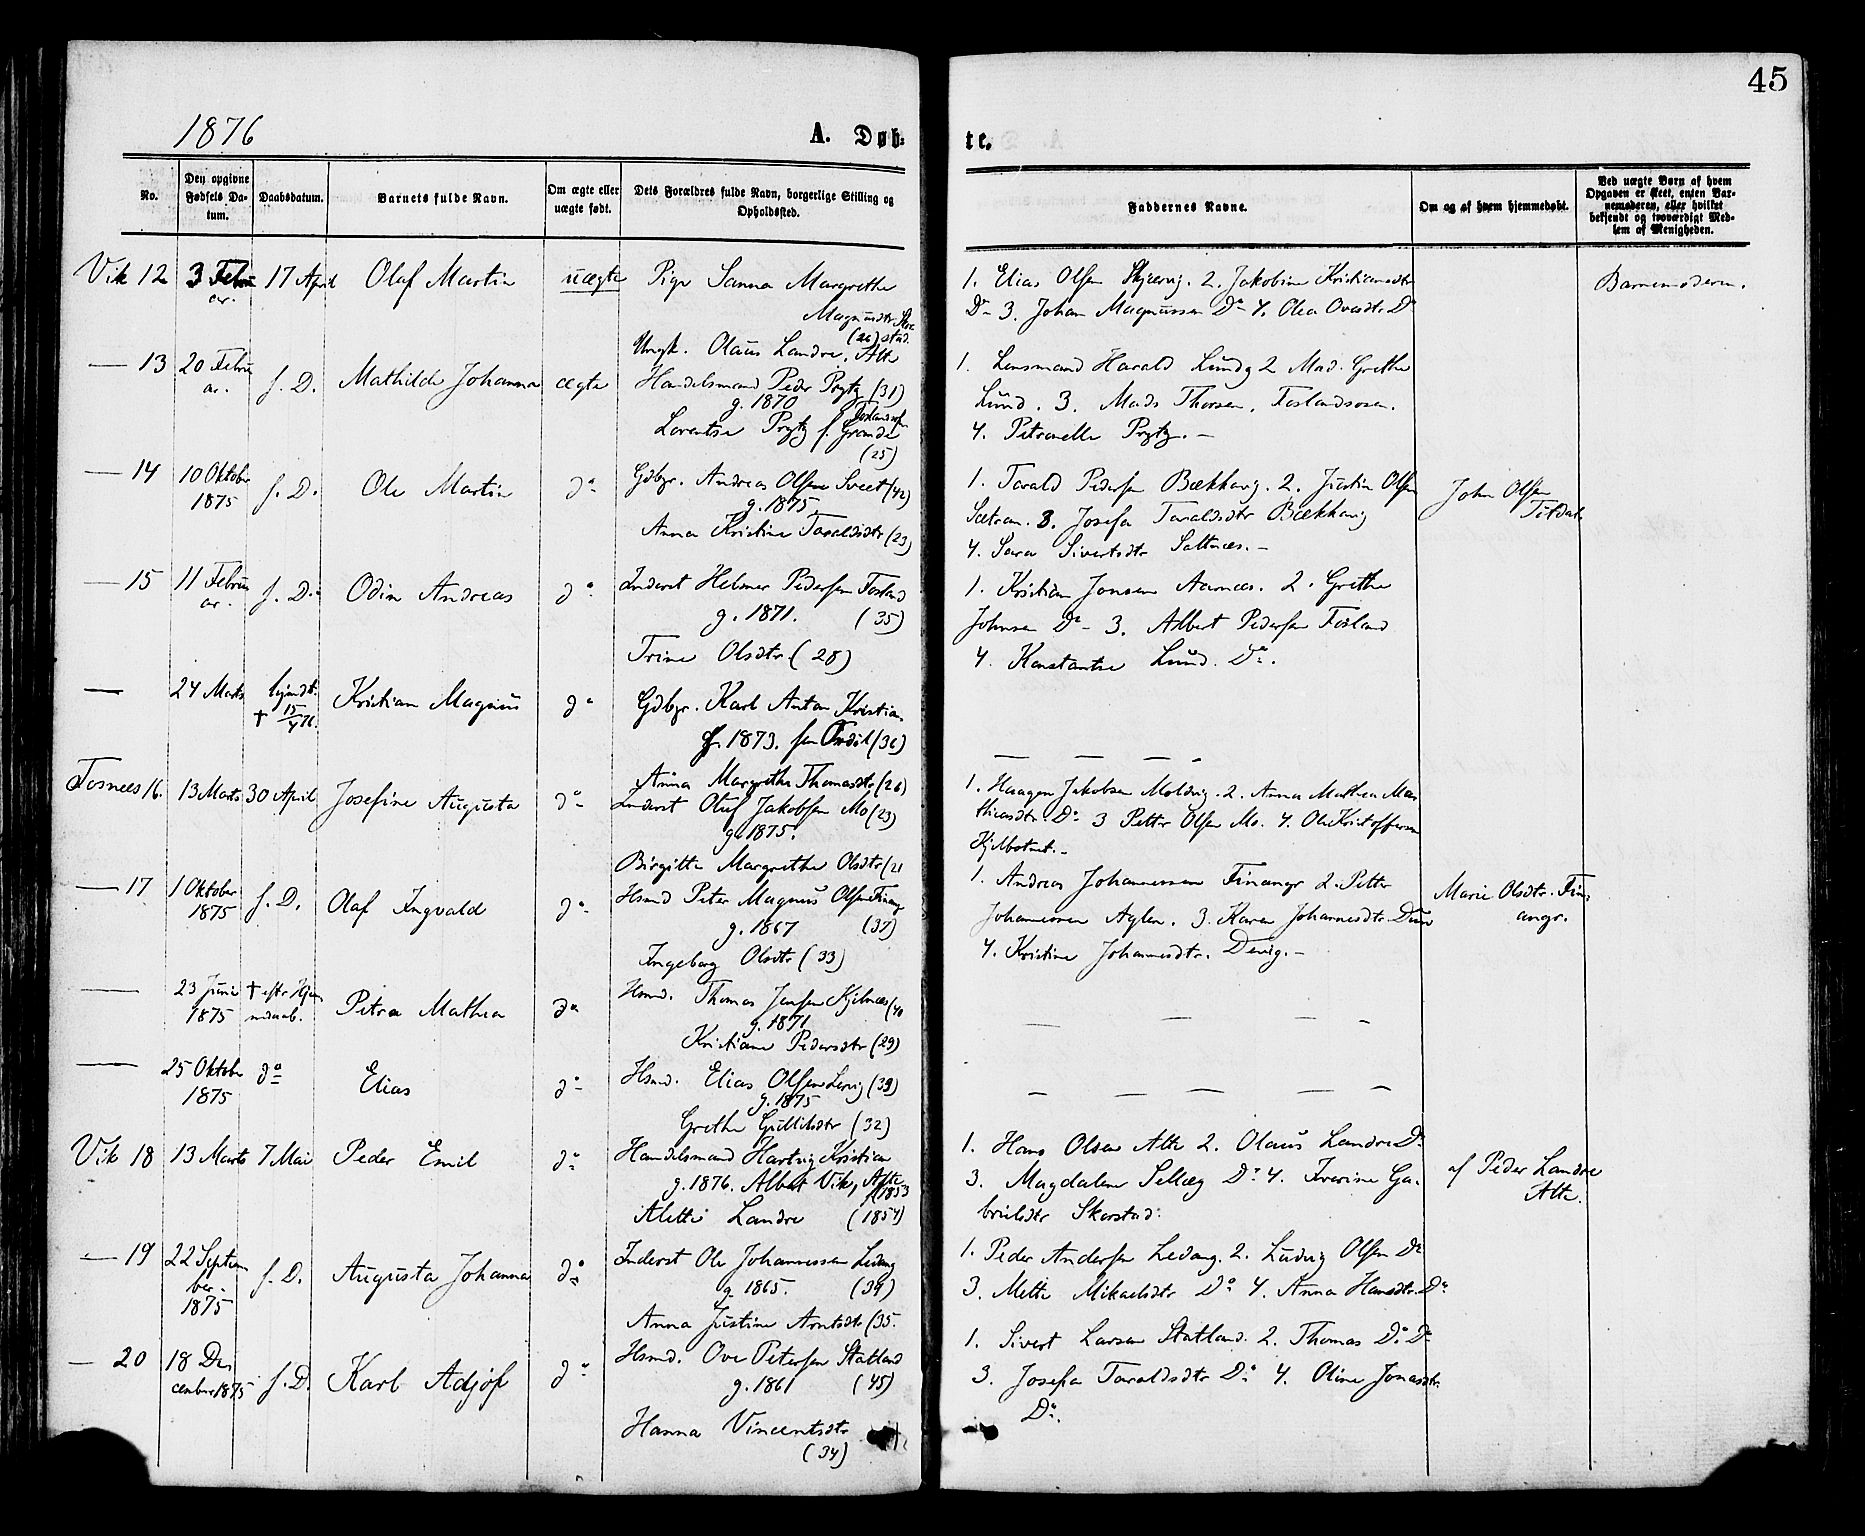 45
1876
A. Døb-
te.
No.
Den opgivne Fødsels Da-tum.
Daabsdatum.
Barnets fulde Navn.
Om ægte eller uægte født.
Dets Forældres fulde Navn, borgerlige Stilling og Opholdssted.
Faddernes Navne.
Om og af hvem hjemmedøbt.
Ved uægte Børn af hvem Opgaven er skeet, enten Bar-nemoderen, eller hvilket bekjendt og troværdigt Med-lem af Menigheden.
Vik 12 3 Febru 17 April Olaf Martin uægte Pige Sanna Margrethe
ar.
Magnusdtr
(26)
Ungk. Olaus Landre, Alte
1. Elias Olsen Skjærvig. 2. Jakobine Kristiansdtr
Do 3. Johan Magnussen Do 4. Olea Ovesdtr Do
Barnemoderen.
— 13 20 Febru f. D. Mathilde Johanna ægte Handelsmand Peder Prytz (31)
ar.
g. 1870
Lorentse Prytz f. Grande
(25)
1. Lensmand Harald Lund 2 Mad. Grethe
Lund. 3. Mads Thorsen, Foslandsosen.
4. Petronelle Prytz. —
— 14 10 Oktober f. D. Ole Martin do Gdbgr. Andreas Olsen (42)
1875
g. 1875.
Anna Kristine Taraldsdtr (23)
1. Tarald Pedersen Bækkavig. 2. Justin Olsen
Sætran. 3. Josefa Taraldsdtr Bækkavig
4. Sara Sivertsdtr Saltnæs. —
John Olsen
— 15 11 Febru f. D. Odin Andreas do Inderst Helmer Pedersen Fosland
ar.
g. 1871. (35)
Trine Olsdtr (28)
1. Kristian Jonsen Aarnæs. 2. Grethe
Johnsen Do — 3. Albert Pedersen Fosland
4. Konstantse Lund. Do.
— 24 Marts hjmdt. Kristian Magnus do Gdbgr. Karl Anton Kristian
† 15/4 76.
g. 1873. sen (36)
Anna Margrethe Thomasdtr (26)
— — — —
Fosnes 16. 13 Marts 30 April Josefine Augusta do Inderst Oluf Jakobsen Mo (23)
g. 1875.
Birgitte Margrethe Olsdtr (21
1. Haagen Jakobsen Moldvig. 2. Anna Mathea Mat
thiasdtr. Do 3 Petter Olsen Mo. 4. Ole Kristoffersen
Kjelbotnet. —
— 17 1 Oktober f. D. Olaf Ingvald do Hsmd Peter Magnus Olsen
1875
g. 1867 (37)
Ingeborg Olsdtr (33)
1. Andreas Johannessen Finangr 2. Petter
Johannessen Aglen. 3. Karen Johannesdtr. Dun
4. Kristine Johannesdtr. Devig. —
Marie Olsdtr. Fin
angr.
— 23 Juni † eftr Hjem Petra Mathea do Hsmd. Thomas Jensen Kjelnæs (40
1875 medaab.
g. 1871
Kristiane Pedersdtr (29)
— — — —
— 25 Oktober do Elias do Hsmd. Elias Olsen (39)
1875
g. 1875
Grethe (32)
— — — —
Vik 18 13 Marts 7 Mai Peder Emil do Handelsmand Hartvig Kristian
g. 1876. Albert Vik, Alte
1853
Alette Landre (1854)
1. Hans Olsen Alte 2. Olaus Landre Do
3. Magdalene Sellæg Do 4. Iverine Ga-
brielsdtr Skorstad.
af Peder Landre
Alte.
— 19 22 Septem f. D. Augusta Johanna do Inderst Ole Johannessen Ledang
ber.
1875
g. 1865. (39)
Anna Justine Arntsdtr (35.
1. Peder Andersen Ledang. 2. Ludvig Olsen Do
3. Mette Mikaelsdtr Do 4. Anna Hansdtr. Do
— 20 18 De f. D. Karl Adjøf do Hsmd. Ove Petersen Statland
cember 1875
g. 1861 (45)
Hanna Vincentsdtr
(34)
1. Sivert Larsen Statland. 2. Thomas Do Do
3. Josefa Taraldsdtr Do 4. Oline Jonasdtr.
Do.